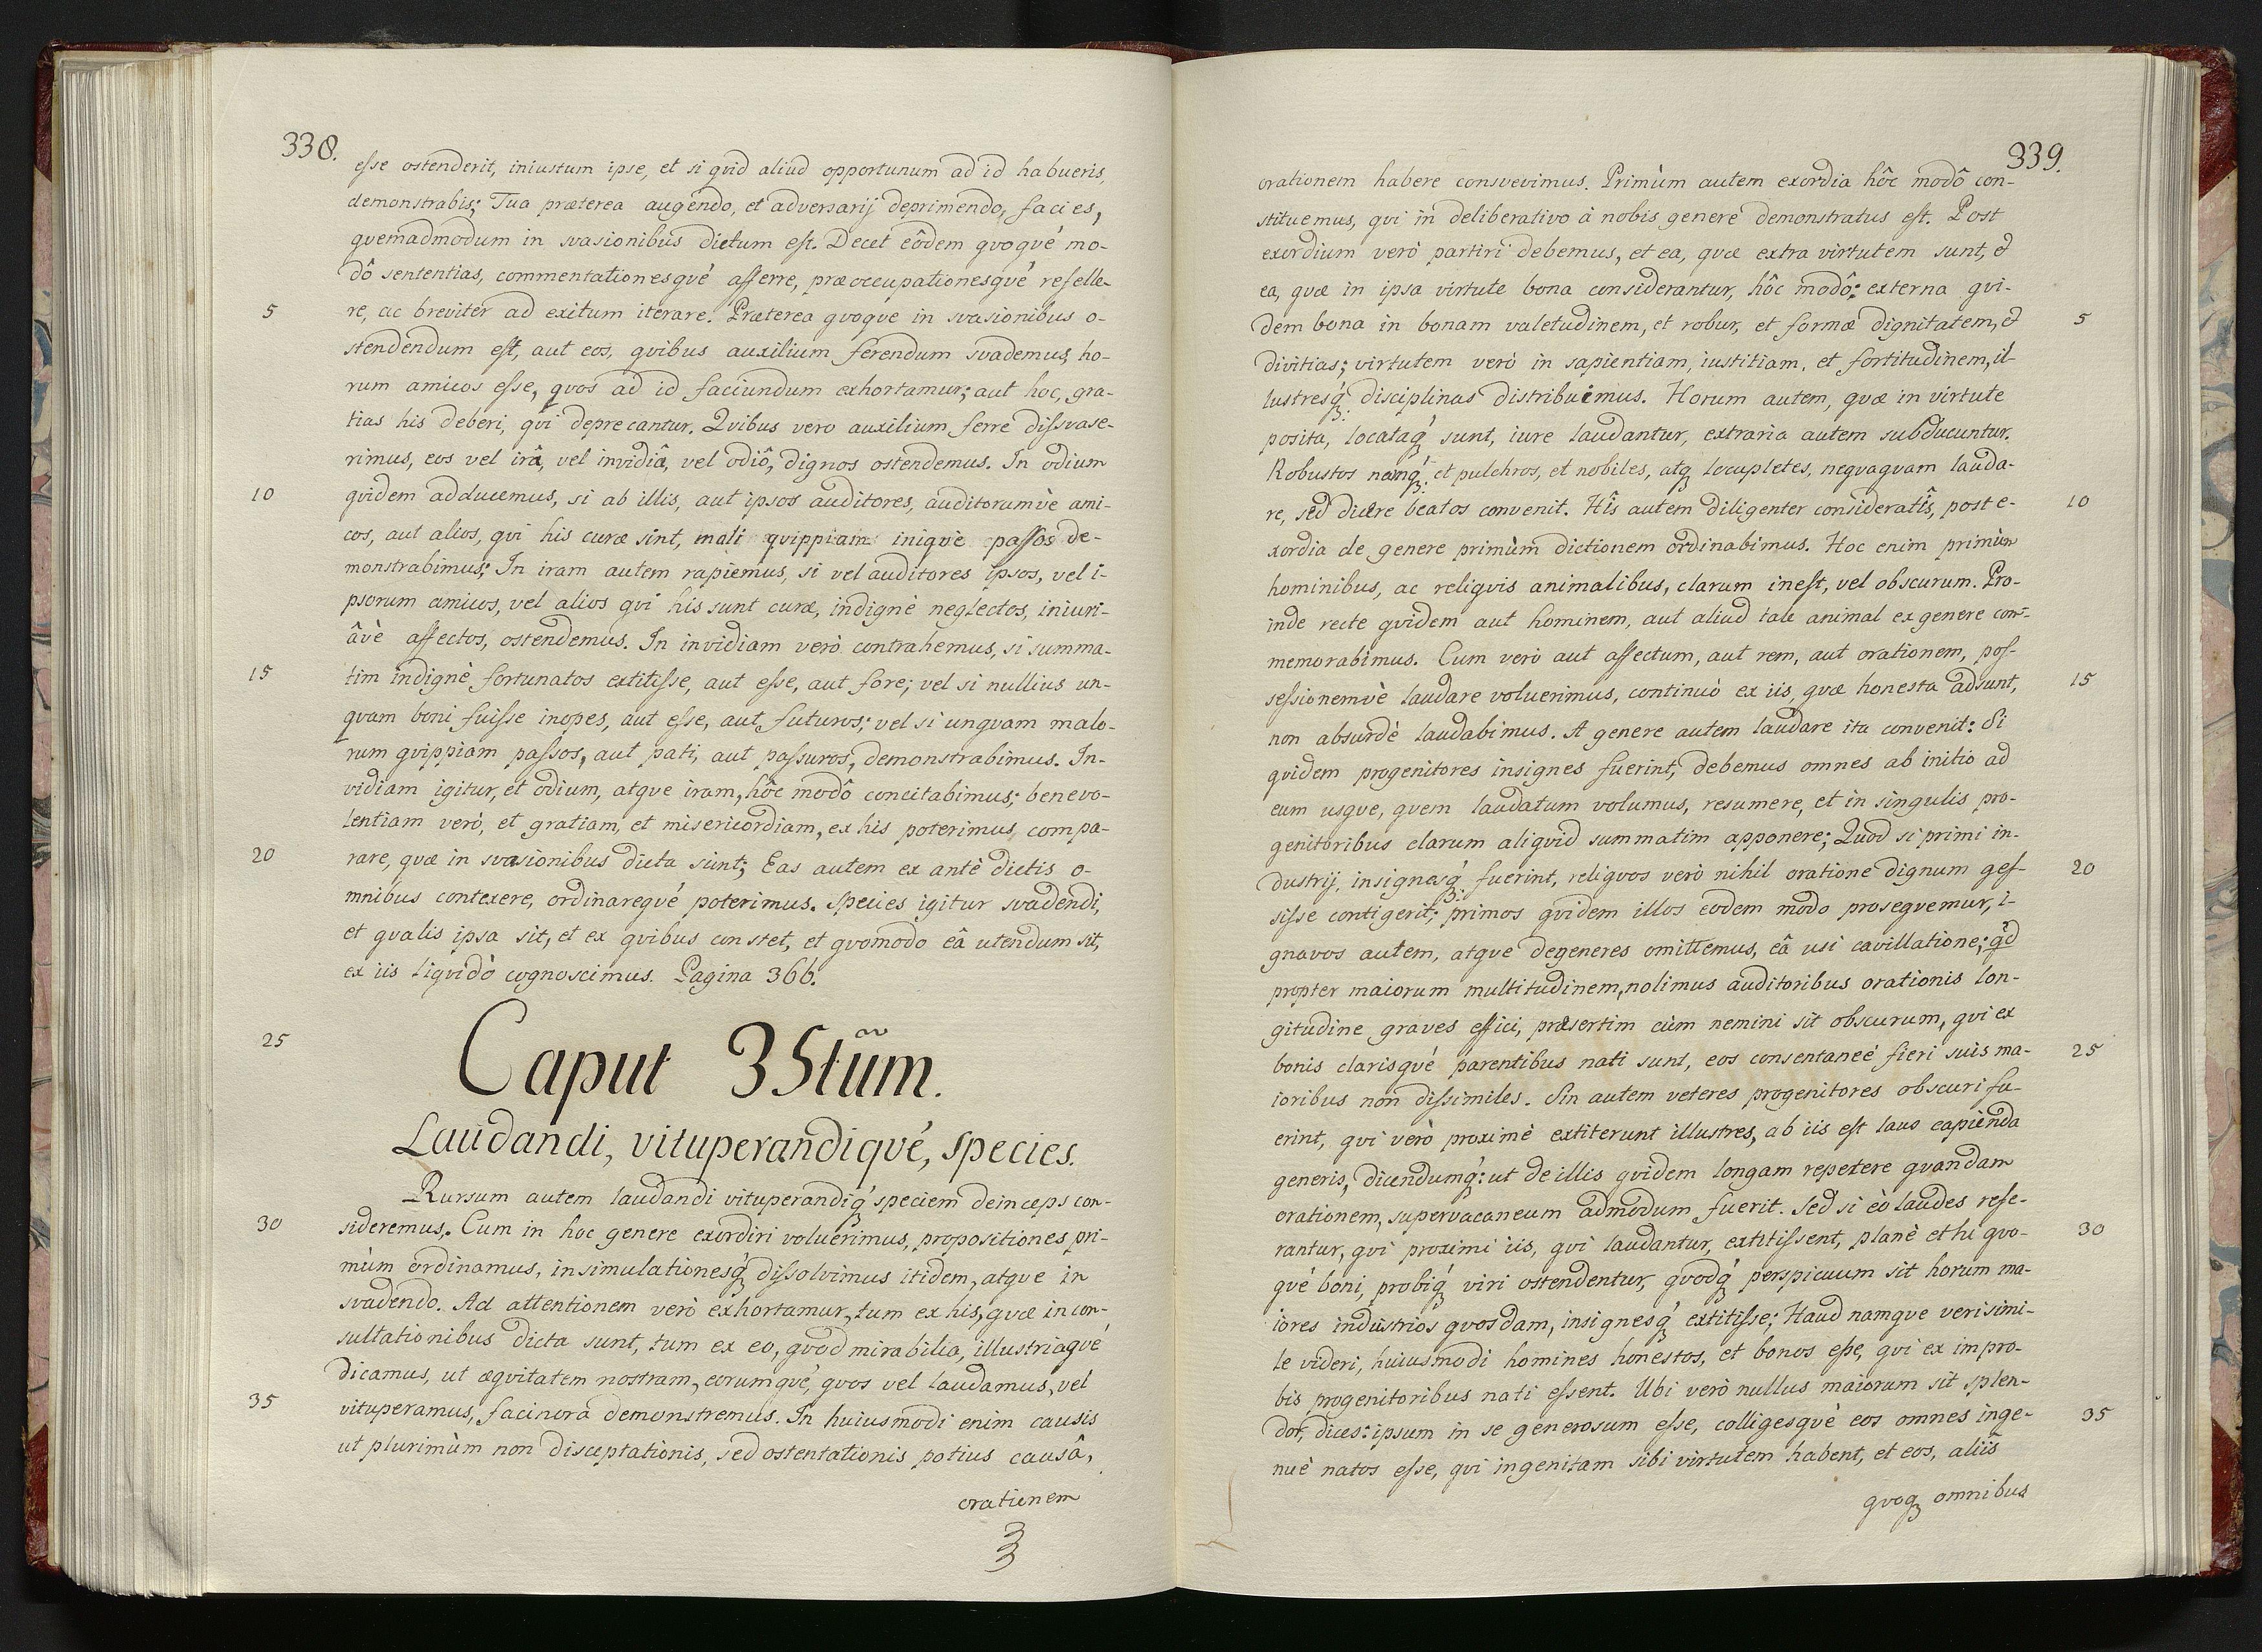 338.
esse ostenderit, iniustum ipse, et si qvid aliud opportunum ad id habueris,
demonstrabis; Tua præterea augendo, et adversarij deprimendo, facies,
qvemadmodum in svasionibus dictum est. Decet eôdem qvoqvé mo-
dô sententias, commentationesqvé afferre, præoccupationesqvé refelle-
5
re, ac breviter ad exitum iterare. Præterea qvoqve in svasionibus o-
stendendum est, aut eos, qvibus auxilium ferendum svademus, ho-
rum amicos esse, qvos ad id faciundum exhortamur; aut hoc, gra-
tias his deberi, qvi deprecantur. Qvibus vero auxilium ferre dissvase-
rimus, eos vel irâ, vel invidiâ, vel odiô, dignos ostendemus. In odium
10
qvidem adducemus, si ab illis, aut ipsos auditores, auditorumvè ami-
cos, aut alios, qvi his curæ sint, mali qvippiam iniqvè passos de-
monstrabimus; In iram autem rapiemus, si vel auditores ipsos, vel i-
psorum amicos, vel alios qvi his sunt curæ, indignè neglectos, iniuri-
âvè affectos, ostendemus. In invidiam verò contrahemus, si summa-
15
tim indignè fortunatos extitisse, aut esse, aut fore; vel si nullius un-
qvam boni fuisse inopes, aut esse, aut futuros; vel si unqvam malo-
rum qvippiam passos, aut pati, aut passuros, demonstrabimus. In-
vidiam igitur, et odium, atqve iram, hôc modô concitabimus; benevo-
lentiam verò, et gratiam, et misericordiam, ex his poterimus, compa-
20
rare, quæ in svasionibus dicta sunt; Eas autem ex antè dictis o-
mnibus contexere, ordinareqvé poterimus. Species igitur svadendi,
et qvalis ipsa sit, et ex qvibus constet, et qvomodo eâ utendum sit,
ex iis liqvidò cognoscimus. Pagina 366.
25
Caput 35tum.
Laudandi, vituperandiqvé, species.
Rursum autem laudandi vituperandiq́ speciem deinceps con-
30
sideremus. Cum in hoc genere exordiri voluerimus, propositiones pri-
mùm ordinamus, insimulationesq́ dissolvimus itidem, atqve in
svadendo. Ad attentionem verò exhortamur, tum ex his, qvæ in con-
sultationibus dicta sunt, tum ex eo, qvod mirabilia, illustriaqvé
dicamus, ut æqvitatem nostram, eorumqvé, qvos vel laudamus, vel
35
vituperamus, facinora demonstremus. In huiusmodi enim causis
ut plurimùm non disceptationis, sed ostentationis potius causâ,
orationem
339.
orationem habere consvevimus. Primùm autem exordia hôc modô con-
stituemus, qvi in deliberativo à nobis genere demonstratus est. Post
exordium verò partiri debemus, et ea, quæ extra virtutem sunt, &
ea, quæ in ipsa virtute bona considerantur, hôc modô: externa qvi-
5
dem bona in bonam valetudinem, et robur, et formæ dignitatem, &
divitias; virtutem verò in sapientiam, iustitiam, et fortitudinem, il-
lustresq́ disciplinas distribuimus. Horum autem, quæ in virtute
posita, locataq́ sunt, iure laudantur, extraria autem subducuntur.
Robustos namq́; et pulchros, et nobiles, atq locupletes, neqvaqvam lauda-
10
re, sed dicere beatos convenit. Hîs autem diligenter consideratîs, post e-
xordia de genere primùm dictionem ordinabimus. Hoc enim primùm
hominibus, ac reliqvis animalibus, clarum inest, vel obscurum. Pro-
inde recte qvidem aut hominem, aut aliud tale animal ex genere com-
memorabimus. Cum verò aut affectum, aut rem, aut orationem, pos-
15
sessionemvè laudare voluerimus, continuò ex iis, qvæ honesta adsunt,
non absurdè laudabimus. A genere autem laudare ita convenit: Si
qvidem progenitores insignes fuerint, debemus omnes ab initio ad
eum usqve, qvem laudatum volumus, resumere, et in singulis pro-
genitoribus clarum aliqvid summatim apponere; Quod si primi in-
20
dustrij, insignesq́ fuerint, reliqvos verò nihil oratione dignum ges-
sisse contigerit; primos qvidem illos eodem modo proseqvemur, i-
gnavos autem, atqve degeneres omittemus, eâ usi cavillatione; qd
propter maiorum multitudinem, nolimus auditoribus orationis lon-
gitudine graves effici, præsertim cùm nemini sit obscurum, qvi ex
25
bonis clarisqvé parentibus nati sunt, eos consentaneè fieri suis ma-
ioribus non dissimiles. Sin autem veteres progenitores obscuri fu-
erint, qvi verò proximè extiterunt illustres, ab iis est laus capienda
generis, dicendumq́: ut de illis qvidem longam repetere qvandam
orationem, supervacaneum admodum fuerit. Sed si eò laudes refe-
30
rantur, qvi proximi iis, qvi laudantur, extitissent, planè et hi qvo-
qvé boni, probiq́ viri ostendentur, qvodq́ perspicuum sit horum ma-
iores industrios qvosdam, insignesq́ extitisse; Haud namqve verisimi-
le videri, huiusmodi homines honestos, et bonos esse, qvi ex impro-
bis progenitoribus nati essent. Ubi verò nullus maiorum sit splen-
35
dor, dices: ipsum in se generosum esse, colligesqvè eos omnes inge-
nuè natos esse, qvi ingenitam sibi virtutem habent, et eos, aliis
qvoq omnibus